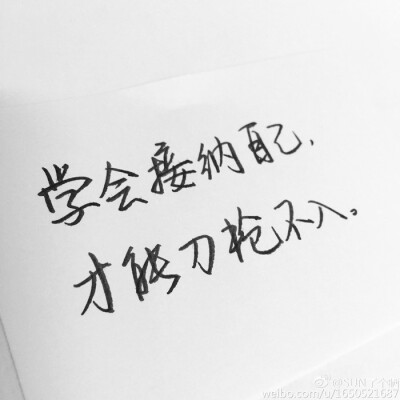 学会接纳自己,
才能刀枪不入。
weibo.com/u/1650521687